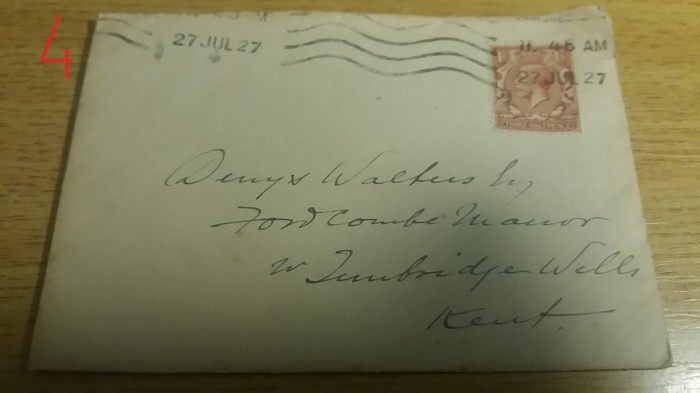 4
27 JUL 27
11. 45 AM
27 JUL 27
THREE HALFPENCE
Denys Walters Esq
Fordcombe Manor
nr Tunbridge Wells
Kent.